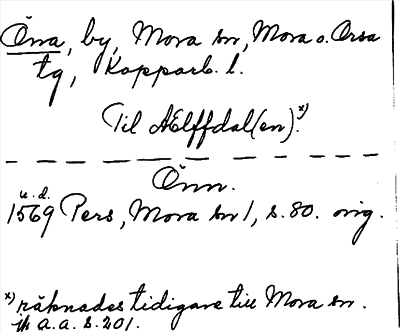 Öna, by, Mora sn, Mora o. Orsa
tg, Kopparb. l.
Til AElffdal(en) x)
Önn.
u.d.
1569 Pers, Mora sn 1, s. 80. orig.
x) räknades tidigare till Mora sn.
jfr a.a. s. 201.